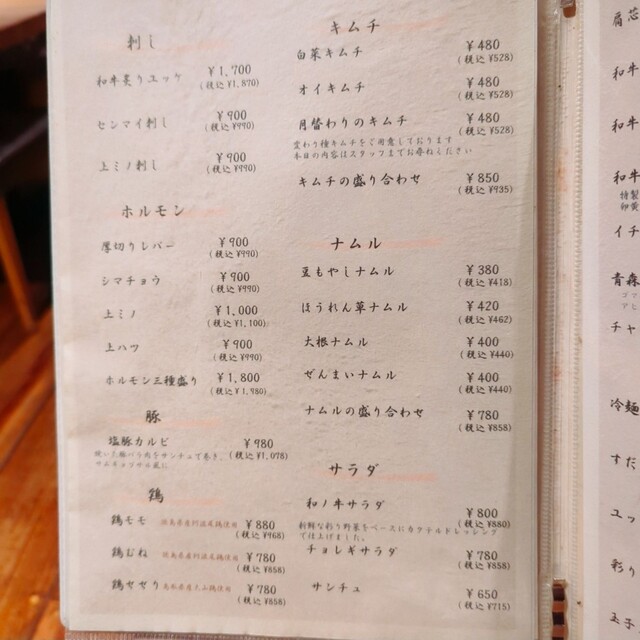 刺し
和牛炙りユッケ ¥1,700
(税込 ¥1,870)
センマイ刺し ¥900
(税込 ¥990)
上ミノ刺し ¥900
(税込 ¥990)
ホルモン
厚切りレバー ¥900
(税込 ¥990)
シマチョウ ¥900
(税込 ¥990)
上ミノ ¥1,000
(税込 ¥1,100)
上ハツ ¥900
(税込 ¥990)
ホルモン三種盛り ¥1,800
(税込 ¥1,980)
豚
塩豚カルビ ¥980
焼いた豚バラ肉をサンチュで巻き、(税込 ¥1,078)
サムギョプサル風に
鶏
鶏モモ 徳島県産阿波尾鶏使用 ¥880
(税込 ¥968)
鶏むね 徳島県産阿波尾鶏使用 ¥780
(税込 ¥858)
鶏セセリ 鳥取県産大山鶏使用 ¥780
(税込 ¥858)
キムチ
白菜キムチ ¥480
(税込 ¥528)
オイキムチ ¥480
(税込 ¥528)
月替わりのキムチ ¥480
(税込 ¥528)
変わり種キムチをご用意しております
本日の内容はスタッフまでお尋ねください
キムチの盛り合わせ ¥850
(税込 ¥935)
ナムル
豆もやしナムル ¥380
(税込 ¥418)
ほうれん草ナムル ¥420
(税込 ¥462)
大根ナムル ¥400
(税込 ¥440)
ぜんまいナムル ¥400
(税込 ¥440)
ナムルの盛り合わせ ¥780
(税込 ¥858)
サラダ
和ノ牛サラダ ¥800
(税込 ¥880)
新鮮な彩り野菜をベースにカクテルドレッシング
で仕上げました。
チョレギサラダ ¥780
(税込 ¥858)
サンチュ ¥650
(税込 ¥715)
肩芯
和牛
和牛
和牛
特製
卵黄
イチ
青森
ゴマ
チャ
冷麺
すだ
ユッ
彩り
玉子